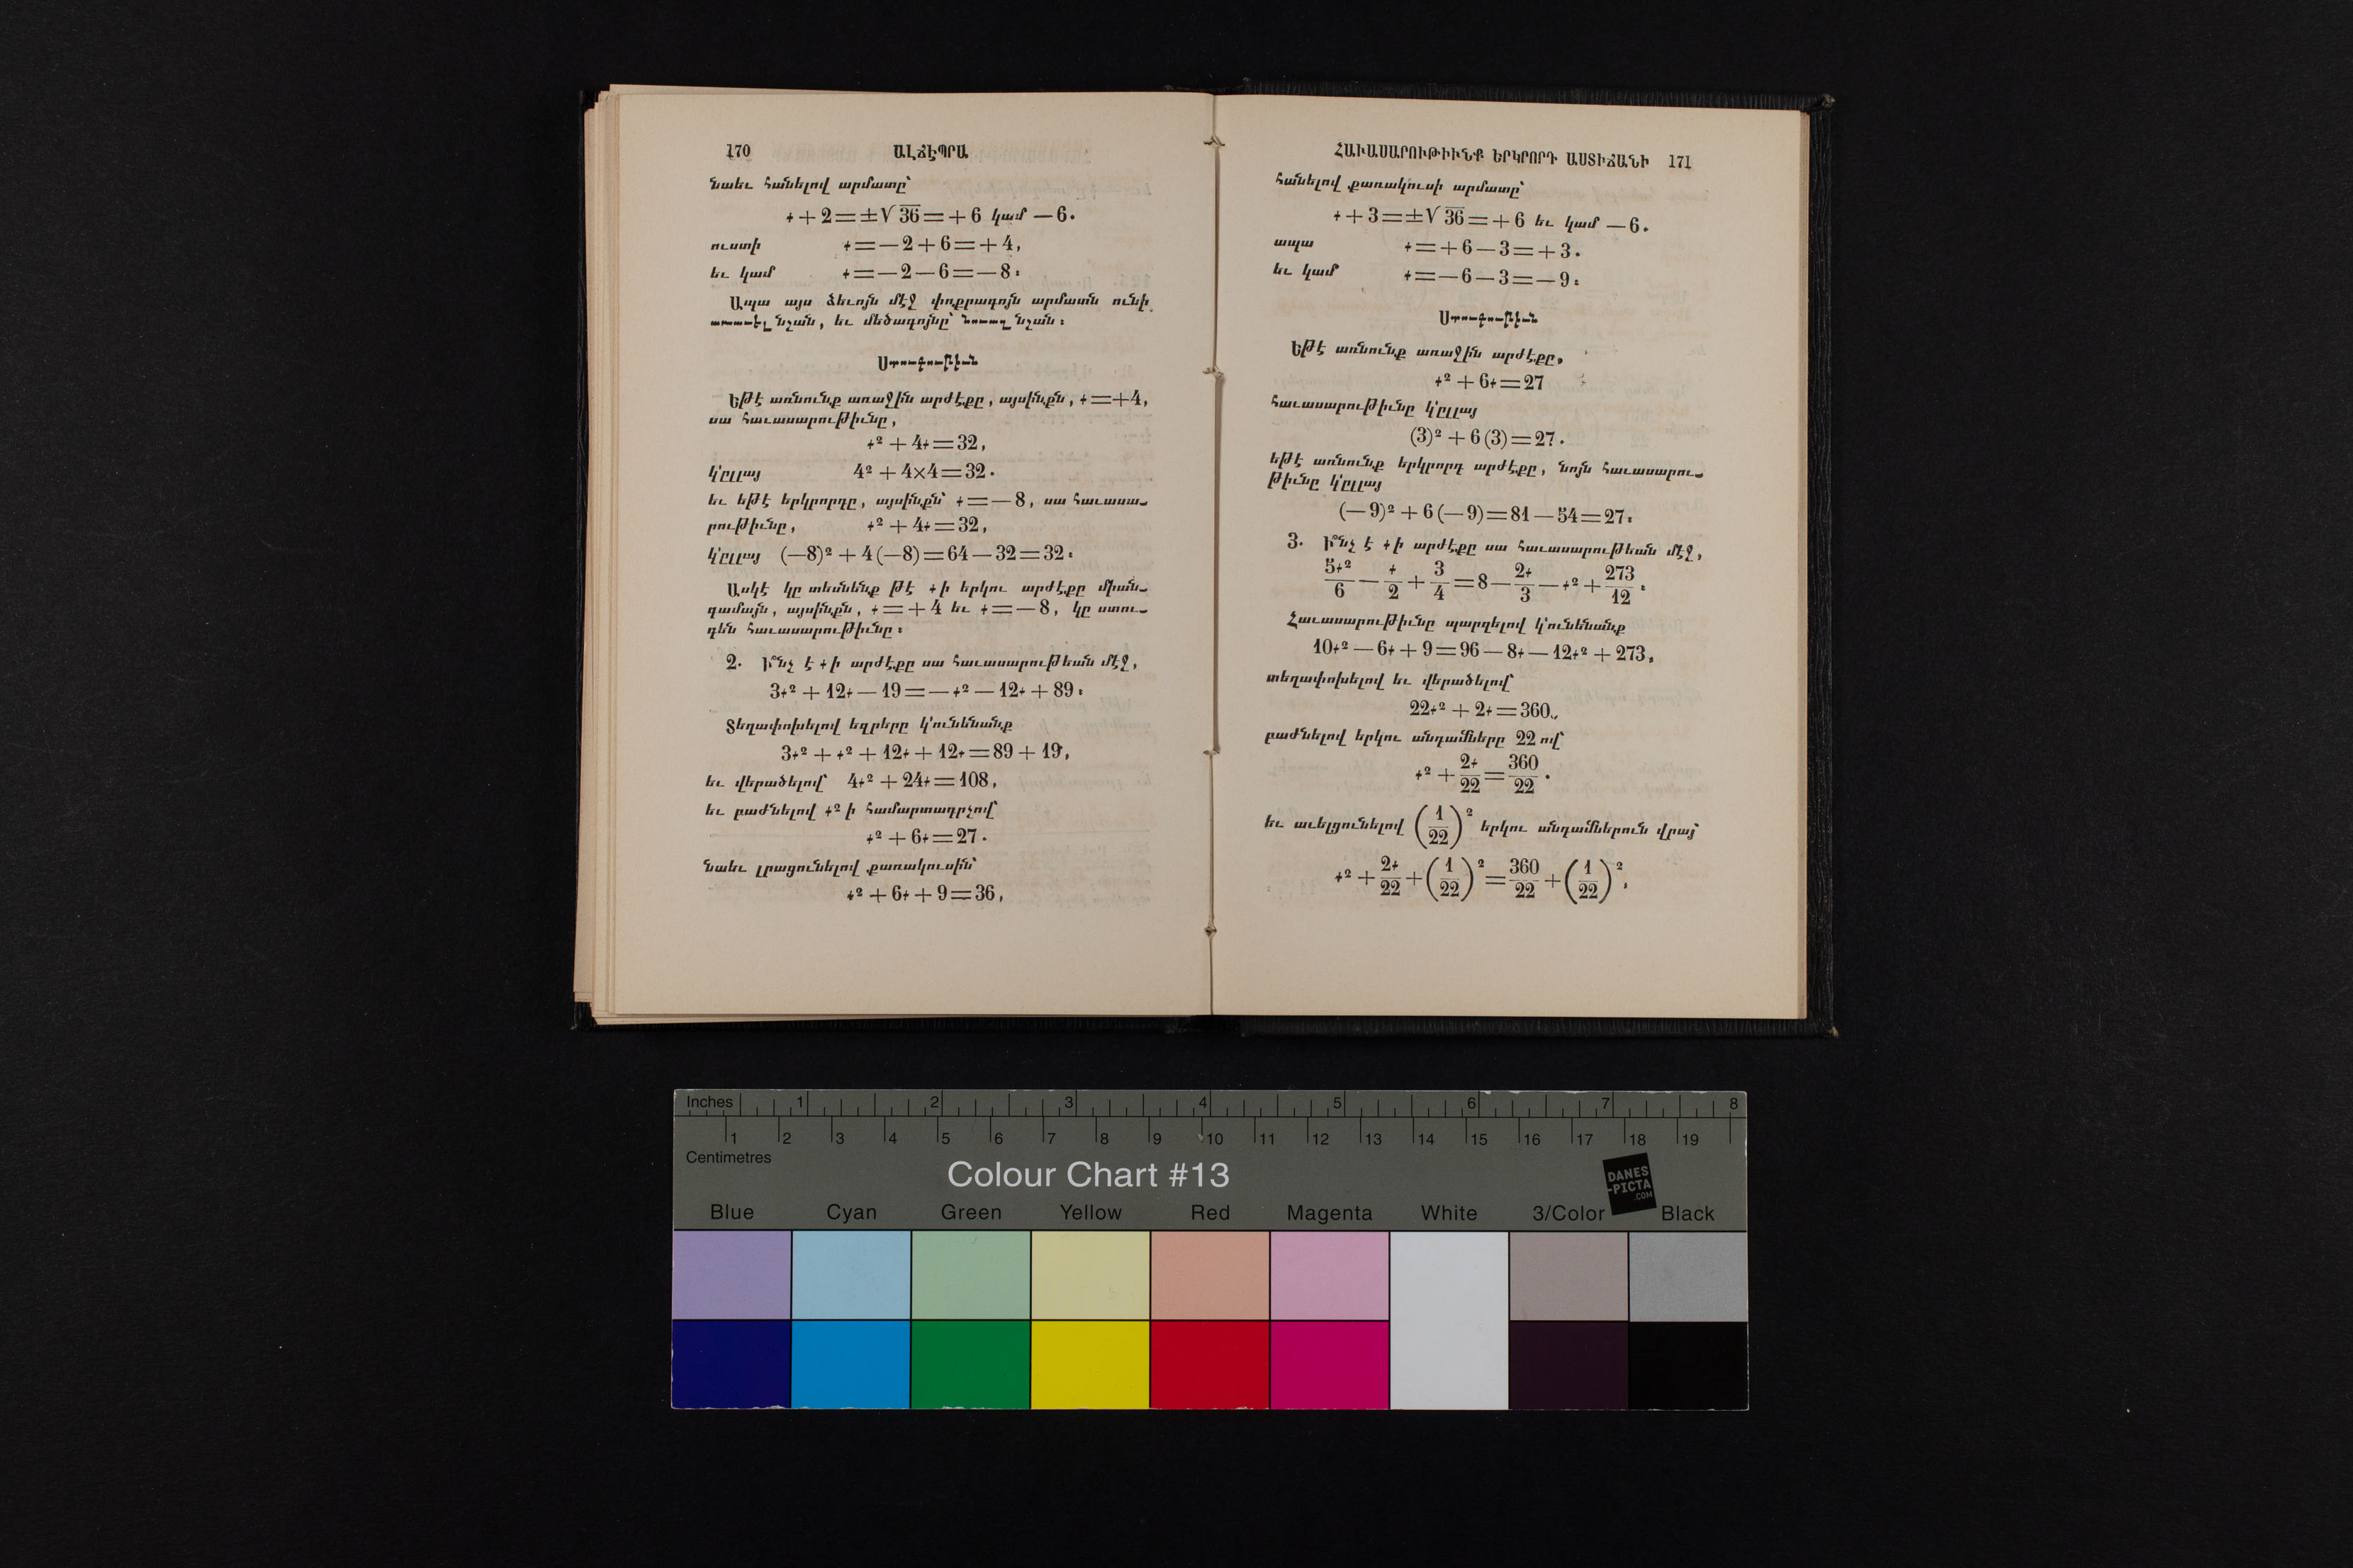 170 ԱԼՃԷՊՐԱ
նաեւ հանելով արմատը՝
𝓍 + 2 = ±√36 = + 6 կամ — 6.
ուստի 𝓍 = — 2 + 6 = + 4,
եւ կամ 𝓍 = — 2 — 6 = — 8։
Ապա այս ձեւոյն մէջ փոքրագոյն արմատն ունի
առաւել նշան, եւ մեծագոյնը՝ նուազ նշան։
Ստուգութիւն
Եթէ առնունք առաջին արժէքը, այսինքն, 𝓍 = +4,
սա հաւասարութիւնը,
𝓍² + 4𝓍 = 32,
կ'ըլլայ 4² + 4×4 = 32.
եւ եթէ երկրորդը, այսինքն՝ 𝓍 = — 8, սա հաւասա-
րութիւնը, 𝓍² + 4𝓍 = 32,
կ'ըլլայ (—8)² + 4(—8) = 64 — 32 = 32։
Ասկէ կը տեսնենք թէ 𝓍ի երկու արժէքը միան-
գամայն, այսինքն, 𝓍 = + 4 եւ 𝓍 = — 8, կը ստու-
գեն հաւասարութիւնը։
2. Ի՞նչ է 𝓍ի արժէքը սա հաւասարութեան մէջ,
3𝓍² + 12𝓍 — 19 = — 𝓍² — 12𝓍 + 89։
Տեղափոխելով եզրերը կ'ունենանք
3𝓍² + 𝓍² + 12𝓍 + 12𝓍 = 89 + 19,
եւ վերածելով՝ 4𝓍² + 24𝓍 = 108,
եւ բաժնելով 𝓍²ի համարտադրչով՝
𝓍² + 6𝓍 = 27.
նաեւ լրացունելով քառակուսին՝
𝓍² + 6𝓍 + 9 = 36,
ՀԱՒԱՍԱՐՈՒԹԻՒՆՔ ԵՐԿՐՈՐԴ ԱՍՏԻՃԱՆԻ 171
հանելով քառակուսի արմատը՝
𝓍 + 3 = ±√36 = + 6 եւ կամ — 6.
ապա 𝓍 = + 6 — 3 = + 3.
եւ կամ 𝓍 = — 6 — 3 = — 9։
Ստուգութիւն
Եթէ առնունք առաջին արժէքը,
𝓍² + 6𝓍 = 27
հաւասարութիւնը կ'ըլլայ
(3)² + 6(3) = 27.
եթէ առնունք երկրորդ արժէքը, նոյն հաւասարու-
թիւնը կ'ըլլայ
(—9)² + 6(—9) = 81 — 54 = 27։
3. Ի՞նչ է 𝓍ի արժէքը սա հաւասարութեան մէջ,
5𝓍²/6 — 𝓍/2 + 3/4 = 8 — 2𝓍/3 — 𝓍² + 273/12։
Հաւասարութիւնը պարզելով կ'ունենանք
10𝓍² — 6𝓍 + 9 = 96 — 8𝓍 — 12𝓍² + 273,
տեղափոխելով եւ վերածելով՝
22𝓍² + 2𝓍 = 360,
բաժնելով երկու անդամները 22 ով՝
𝓍² + 2𝓍/22 = 360/22.
եւ աւելցունելով (1/22)² երկու անդամներուն վրայ՝
𝓍² + 2𝓍/22 + (1/22)² = 360/22 + (1/22)²,
Inches 1 2 3 4 5 6 7 8
1 2 3 4 5 6 7 8 9 10 11 12 13 14 15 16 17 18 19
Centimetres
Colour Chart #13
DANES
-PICTA
.COM
Blue Cyan Green Yellow Red Magenta White 3/Color Black